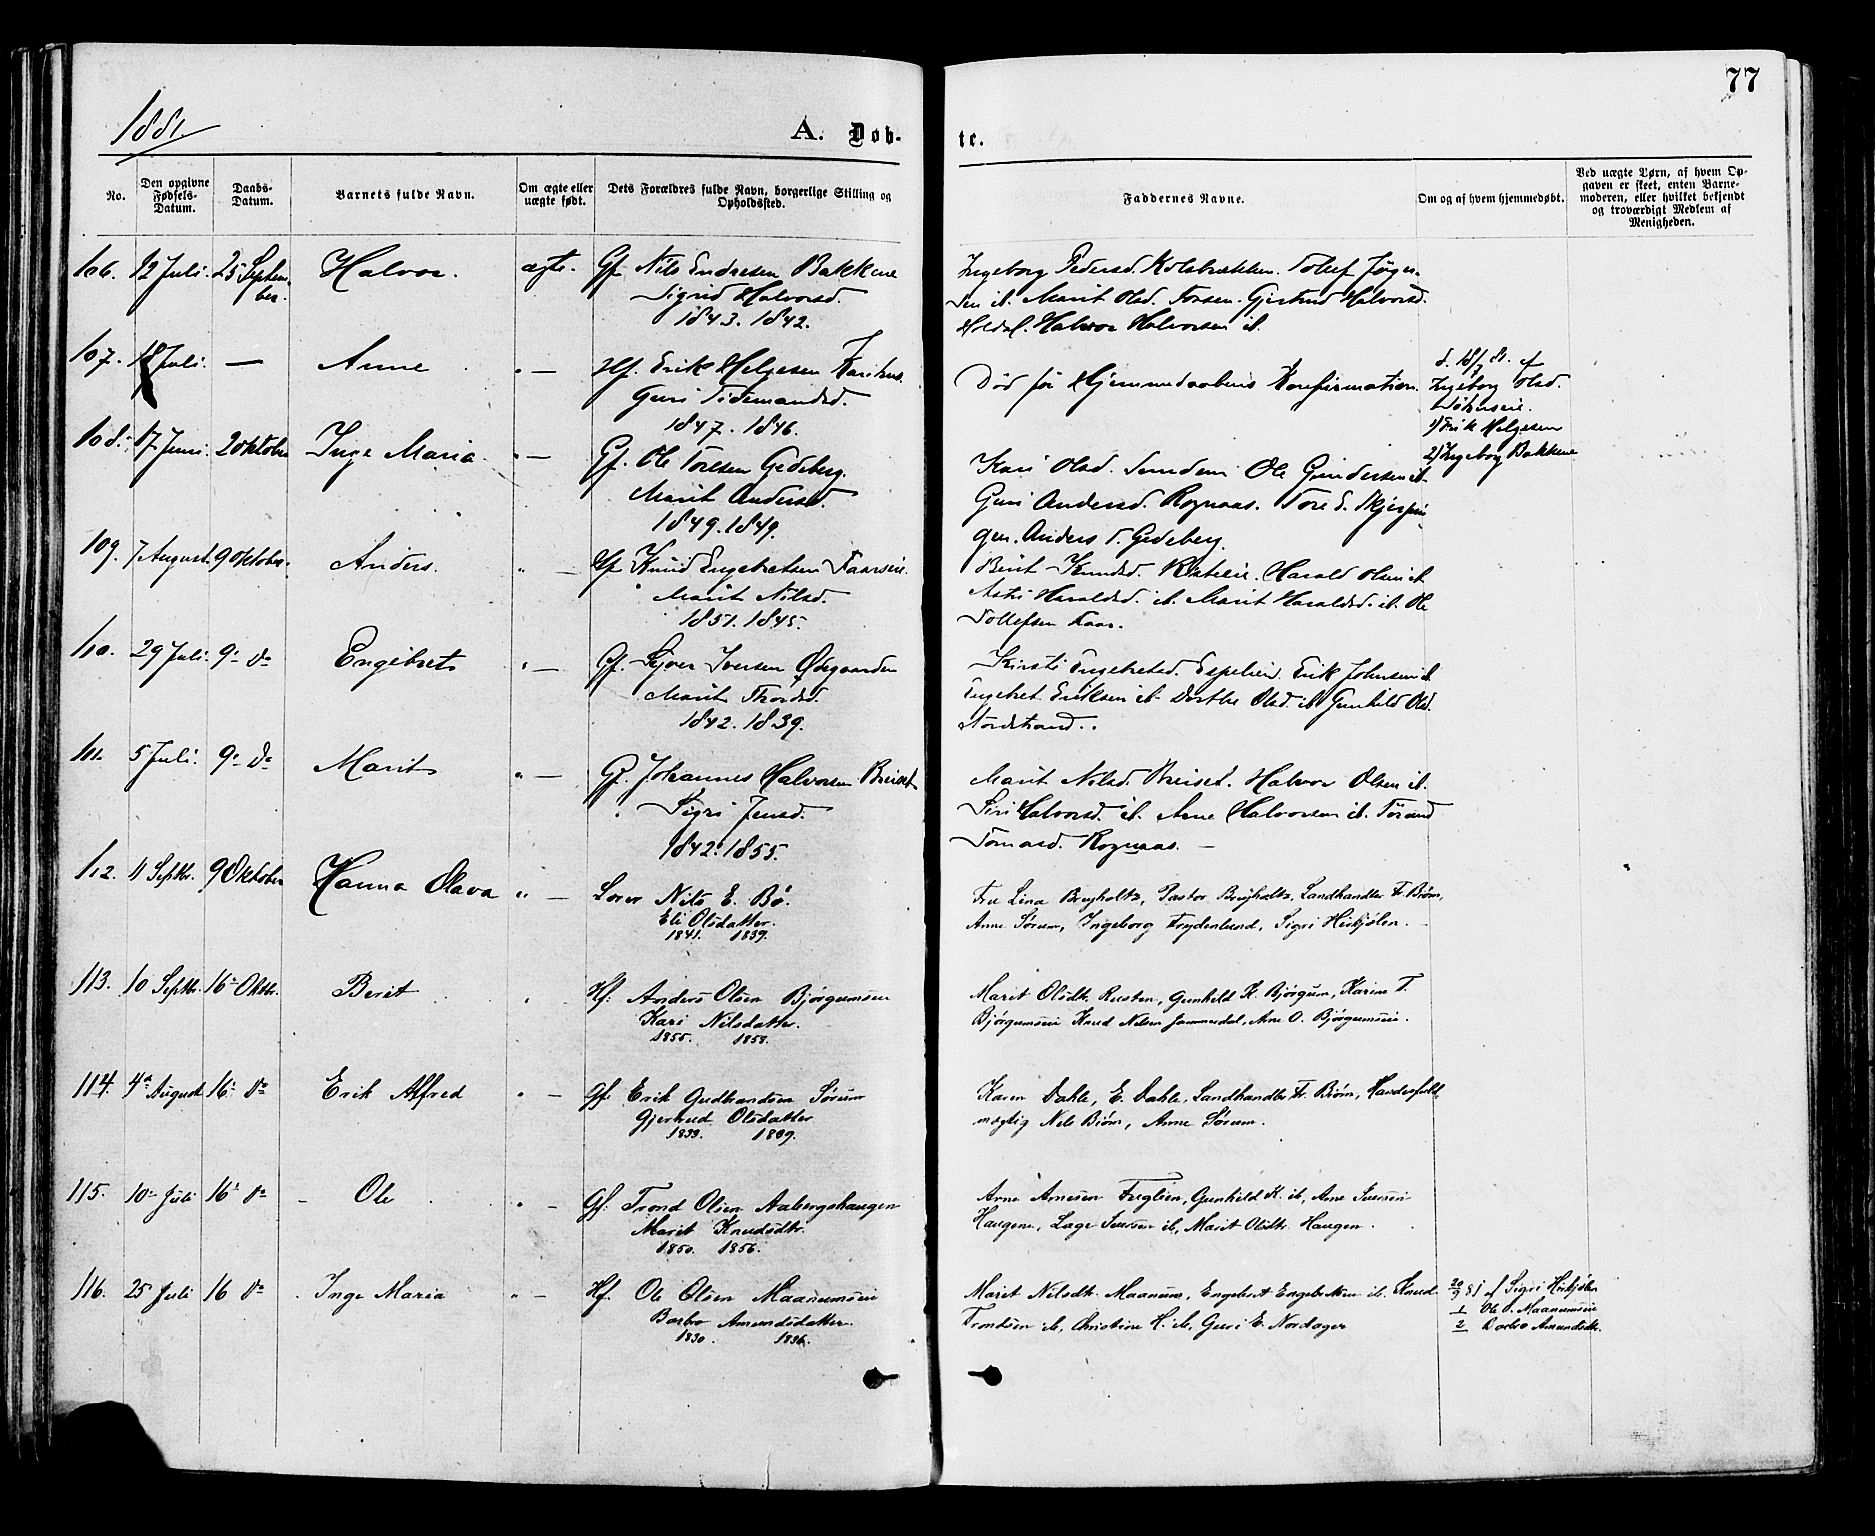 77
1881.
A. Døb-
te.
No.
Den opgivne Fødsels-Datum.
Daabs-Datum.
Barnets fulde Navn.
Om ægte eller uægte født.
Dets Forældres fulde Navn, borgerlige Stilling og Opholdssted.
Faddernes Navne.
Om og af hvem hjemmedøbt.
Ved uægte Børn, af hvem Opgaven er skeet, enten Barnemoderen, eller hvilket bekjendt og troværdigt Medlem af Menigheden.
106. 12 Juli. 25 Septem- Halvor. ægte. Gf. Nils Endresen Bakkene
ber. Sigrid Halvorsd.
1843. 1842.
Ingeborg Pedersd. Kolsbrækken. Tollef
ib. Marit Olsd. Gjertrud Halvorsd.
Halvor Halvorsen ib.
107. 18 Juli. — Anne " — Hf. Erik Helgesen
Guri Tidemandsd.
1847. 1846.
Død før Hjemmedaabens Konfirmation.
d. 18/7 81. af
Ingeborg Olsd.
1) Erik Helgesen
2) Ingeborg Bakkene
108. 17 Juni. 2 Oktober Inge Maria " — Gf. Ole Toresen Gedeberg.
Marit Andersd.
1849. 1849.
Kari Olsd. Ole Gundersen ib.
Guri Andersd. Rognaas. Tore
gen. Anders T. Gedeberg.
109. 7 August. 9 Oktober. Anders. " — Hf. Knud Engebretsen
Marit Nilsd.
1851. 1845.
Berit Knudsd. Harald Olsen ib.
Astri Haraldsd. ib. Marit Haraldsd. ib. Ole
Tollefsen
110. 29 Juli. 9de do Engebret " — Gf. Syver Iversen Ødegaarden
Marit Thordsd.
1842. 1839.
Kirsti Engebretsd. Espelien. Erik Johnsen ib
Engebret Eriksen ib. Dorthe Olsd. ib. Gunhild Olsd.
Nordstrand.
111. 5 Juli. 9de do Marit " — Gf. Johannes Halvorsen Breiset
Sigri Jensd.
1842. 1855.
Marit Nilsd. Breiset. Halvor Olsen ib.
Siri Halvorsd. ib. Arne Halvorsen ib.
Tomasd. Rognaas. —
112. 11 Septbr. 9 Oktober Hanna Olava " — Lærer Nils E. Bø.
Eli Olsdatter.
1841. 1839.
Fru Lina Bugholtz, Pastor Bugholtz, Landhandler Fr. Biørn,
Anne Sørum, Ingeborg Frydenlund, Sigri Hiskjølen.
113. 10 Septbr. 16de Oktbr. Berit " — Hf. Anders Olsen Bjørgumseie
Kari Nilsdatter.
1855. 1858.
Marit Olsdtr. Rusten, Gunhild K. Bjørgum, Karine T.
Bjørgumseie Knud Nilsen Jammerdal, Arne O. Bjørgumseie.
114. 4de August 16de do Erik Alfred " — Gf. Erik Gudbrandsen Sørum
Gjertrud Olsdatter
1833. 1839.
Karen Dahle, E. Dahle, Landhandler Fr. Biørn, Handelsfuld-
mægtig Nils Biørn, Anne Sørum.
115. 10de Juli 16de do Ole " — Gf. Trond Olsen Aabergshaugen
Marit Knudsdtr.
1850. 1856.
Arne Arnesen Fuglien, Gunhild K. ib, Arne Iversen
Haugene, Lage Iversen ib, Marit Olsdtr. Haugen.
116. 25 Juli 16 do Inge Maria " — Hf. Ole Olsen Maanumseie
Barbro Amundsdatter.
1830. 1836.
Marit Nilsdtr. Maanum, Engebret Engebretsen ib. Knud
Trondsen ib, Christine H. ib, Guri E. Nordager
20/9 81 af Sigri Hiskjølen
1 Ole O. Maanumseie
2 Barbro Amundsdtr.